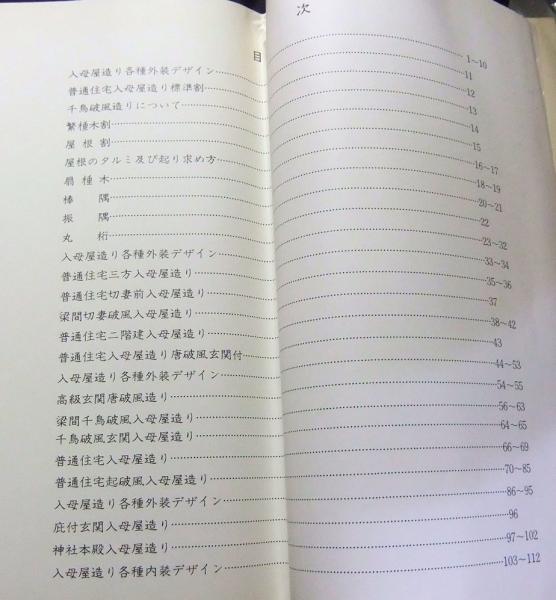 目次
入母屋造り各種外装デザイン……1~10
普通住宅入母屋造り標準割……11
千鳥破風造りについて……12
繁種木割……13
屋根割……14
屋根のタルミ及び起り求め方……15
扇種木……16~17
棒隅……18~19
振隅……20~21
丸桁……22
入母屋造り各種外装デザイン……23~32
普通住宅三方入母屋造り……33~34
普通住宅切妻前入母屋造り……35~36
梁間切妻破風入母屋造り……37
普通住宅二階建入母屋造り……38~42
普通住宅入母屋造り唐破風玄関付……43
入母屋造り各種外装デザイン……44~53
高級玄関唐破風造り……54~55
梁間千鳥破風入母屋造り……56~63
千鳥破風玄関入母屋造り……64~65
普通住宅入母屋造り……66~69
普通住宅起破風入母屋造り……70~85
入母屋造り各種外装デザイン……86~95
庇付玄関入母屋造り……96
神社本殿入母屋造り……97~102
入母屋造り各種内装デザイン……103~112